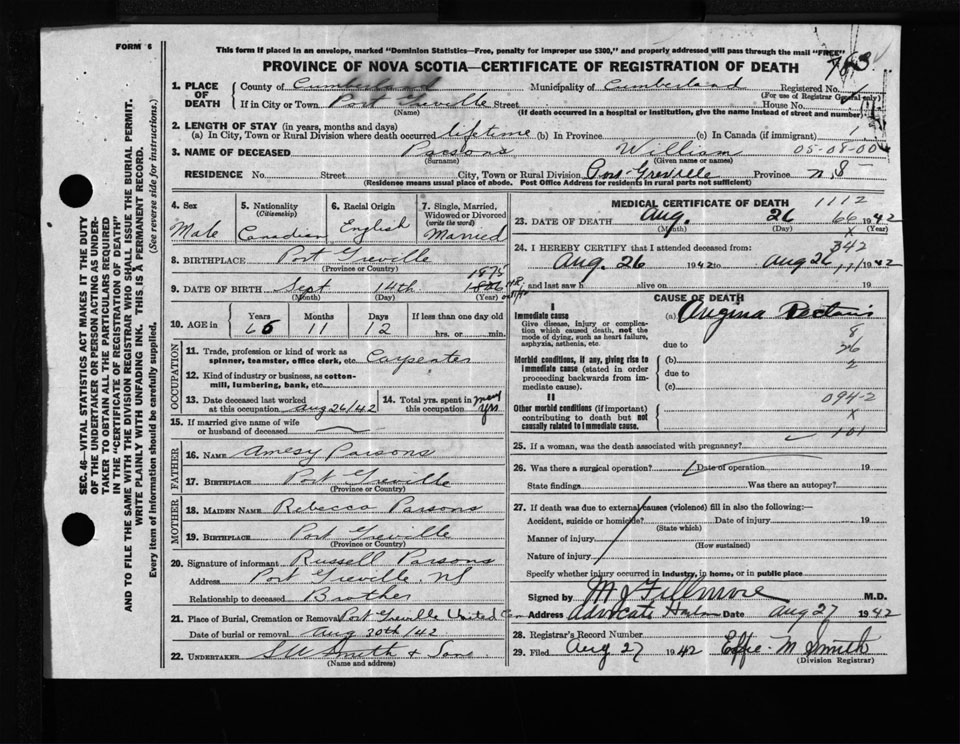 FORM 6
This form if placed in an envelope, marked "Dominion Statistics—Free, penalty for improper use $300," and properly addressed will pass through the mail "FREE"
PROVINCE OF NOVA SCOTIA—CERTIFICATE OF REGISTRATION OF DEATH
1. PLACE OF DEATH
County of Cumberland Municipality of Cumberland Registered No.
(For use of Registrar General only)
If in City or Town Port Greville Street House No.
(Name) (If death occurred in a hospital or institution, give the name instead of street and number)
2. LENGTH OF STAY (in years, months and days)
(a) In City, Town or Rural Division where death occurred lifetime (b) In Province (c) In Canada (if immigrant)
3. NAME OF DECEASED Parsons William 05-08-00
(Surname) (Given name or names)
RESIDENCE No. Street City, Town or Rural Division Port Greville Province N.S.
(Residence means usual place of abode. Post Office Address for residents in rural parts not sufficient)
4. Sex Male
5. Nationality (Citizenship) Canadian
6. Racial Origin English
7. Single, Married, Widowed or Divorced (write the word) Married
8. BIRTHPLACE Port Greville
(Province or Country)
1875
9. DATE OF BIRTH Sept 14th
(Month) (Day) (Year)
10. AGE in Years Months Days If less than one day old
66 11 12 hrs. or min.
OCCUPATION
11. Trade, profession or kind of work as spinner, teamster, office clerk, etc. Carpenter
12. Kind of industry or business, as cotton-mill, lumbering, bank, etc.
13. Date deceased last worked at this occupation Aug 26/42
14. Total yrs. spent in this occupation many yrs
15. If married give name of wife or husband of deceased
FATHER
16. NAME Amesy Parsons
17. BIRTHPLACE Port Greville
(Province or Country)
MOTHER
18. MAIDEN NAME Rebecca Parsons
19. BIRTHPLACE Port Greville
(Province or Country)
20. Signature of informant Russell Parsons
Address Port Greville NS
Relationship to deceased Brother
21. Place of Burial, Cremation or Removal Port Greville United
Date of burial or removal Aug 30th/42
22. UNDERTAKER Smith & Son
(Name and address)
MEDICAL CERTIFICATE OF DEATH 1112
23. DATE OF DEATH Aug. 26 1942
(Month) (Day) (Year)
24. I HEREBY CERTIFY that I attended deceased from:
Aug. 26 1942 to Aug 26 1942
and last saw h alive on 19
CAUSE OF DEATH
I
Immediate cause (a) Angina Pectoris
Give disease, injury or complication which caused death, not the mode of dying, such as heart failure, asphyxia, asthenia, etc.
due to
8
26
2
Morbid conditions, if any, giving rise to immediate cause (stated in order proceeding backwards from immediate cause).
(b)
due to
(c)
II
Other morbid conditions (if important) contributing to death but not causally related to immediate cause.
094-2
x
101
25. If a woman, was the death associated with pregnancy?
26. Was there a surgical operation? Date of operation 19
State findings Was there an autopsy?
27. If death was due to external causes (violence) fill in also the following:—
Accident, suicide or homicide? Date of injury 19
(State which)
Manner of injury
(How sustained)
Nature of injury
Specify whether injury occurred in industry, in home, or in public place
Signed by M J Fillmore M.D.
Address Advocate Date Aug 27 1942
28. Registrar's Record Number
29. Filed Aug 27 1942 Effie M Smith
(Division Registrar)
SEC. 46—VITAL STATISTICS ACT MAKES IT THE DUTY
OF THE UNDERTAKER OR PERSON ACTING AS UNDER-
TAKER TO OBTAIN ALL THE PARTICULARS REQUIRED
IN THE "CERTIFICATE OF REGISTRATION OF DEATH"
AND TO FILE THE SAME WITH THE DIVISION REGISTRAR WHO SHALL ISSUE THE BURIAL PERMIT.
WRITE PLAINLY WITH UNFADING INK. THIS IS A PERMANENT RECORD.
Every item of information should be carefully supplied. (See reverse side for instructions.)